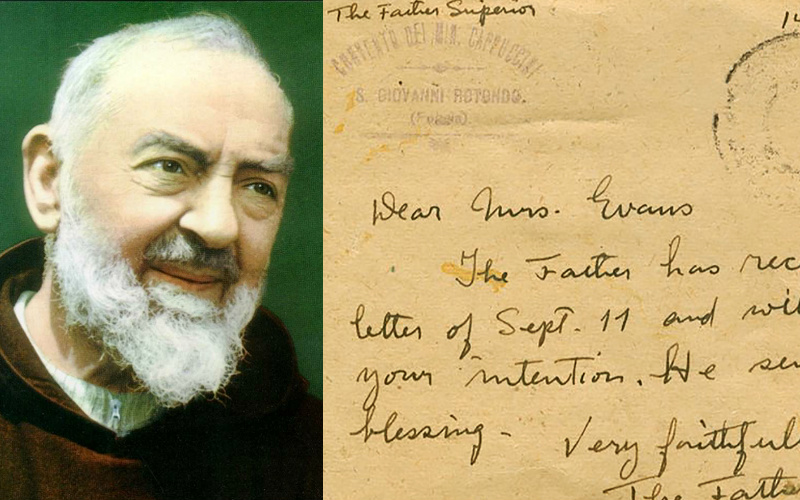 The Father Superior
CONVENTO DEI MIN. CAPPUCCINI
S. GIOVANNI ROTONDO.
(Foggia)
Dear Mrs. Evans
The Father has rec
letter of Sept. 11 and wit
your intention. He sen
blessing. Very faithful
The Fath